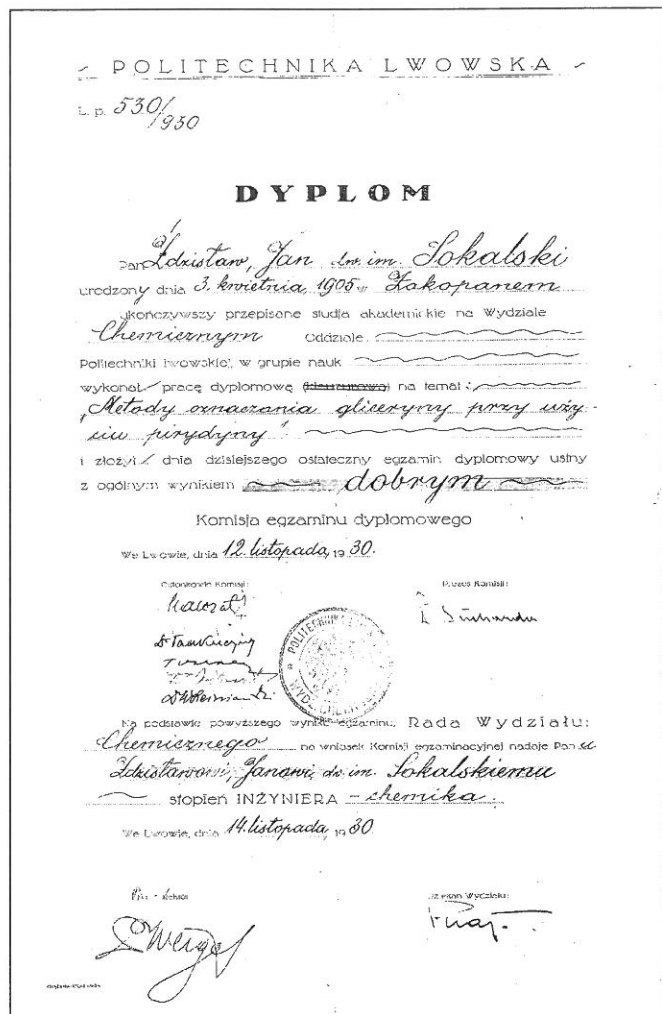 ~ POLITECHNIKA LWOWSKA ~
L. p. 530/930
DYPLOM
Pan Zdzisław, Jan dw. im. Sokalski
urodzony dnia 3. kwietnia, 1905 w Zakopanem
ukończywszy przepisane studja akademickie na Wydziale
Chemicznym Oddziale
Politechniki lwowskiej, w grupie nauk
wykonał pracę dyplomową (klauzurową) na temat:
„Metody oznaczania gliceryny przy uży-
ciu pirydyny".
i złożył dnia dzisiejszego ostateczny egzamin dyplomowy ustny
z ogólnym wynikiem dobrym
Komisja egzaminu dyplomowego
We Lwowie, dnia 12. listopada, 1930.
Członkowie Komisji: Prezes Komisji:
POLITECHNIKA
Na podstawie powyższego wyniku egzaminu, Rada Wydziału:
Chemicznego na wniosek Komisji egzaminacyjnej nadaje Panu
Zdzisławowi, Janowi, dw. im. Sokalskiemu
stopień INŻYNIERA – chemika.
We Lwowie, dnia 14. listopada, 1930
Dziekan Wydziału: